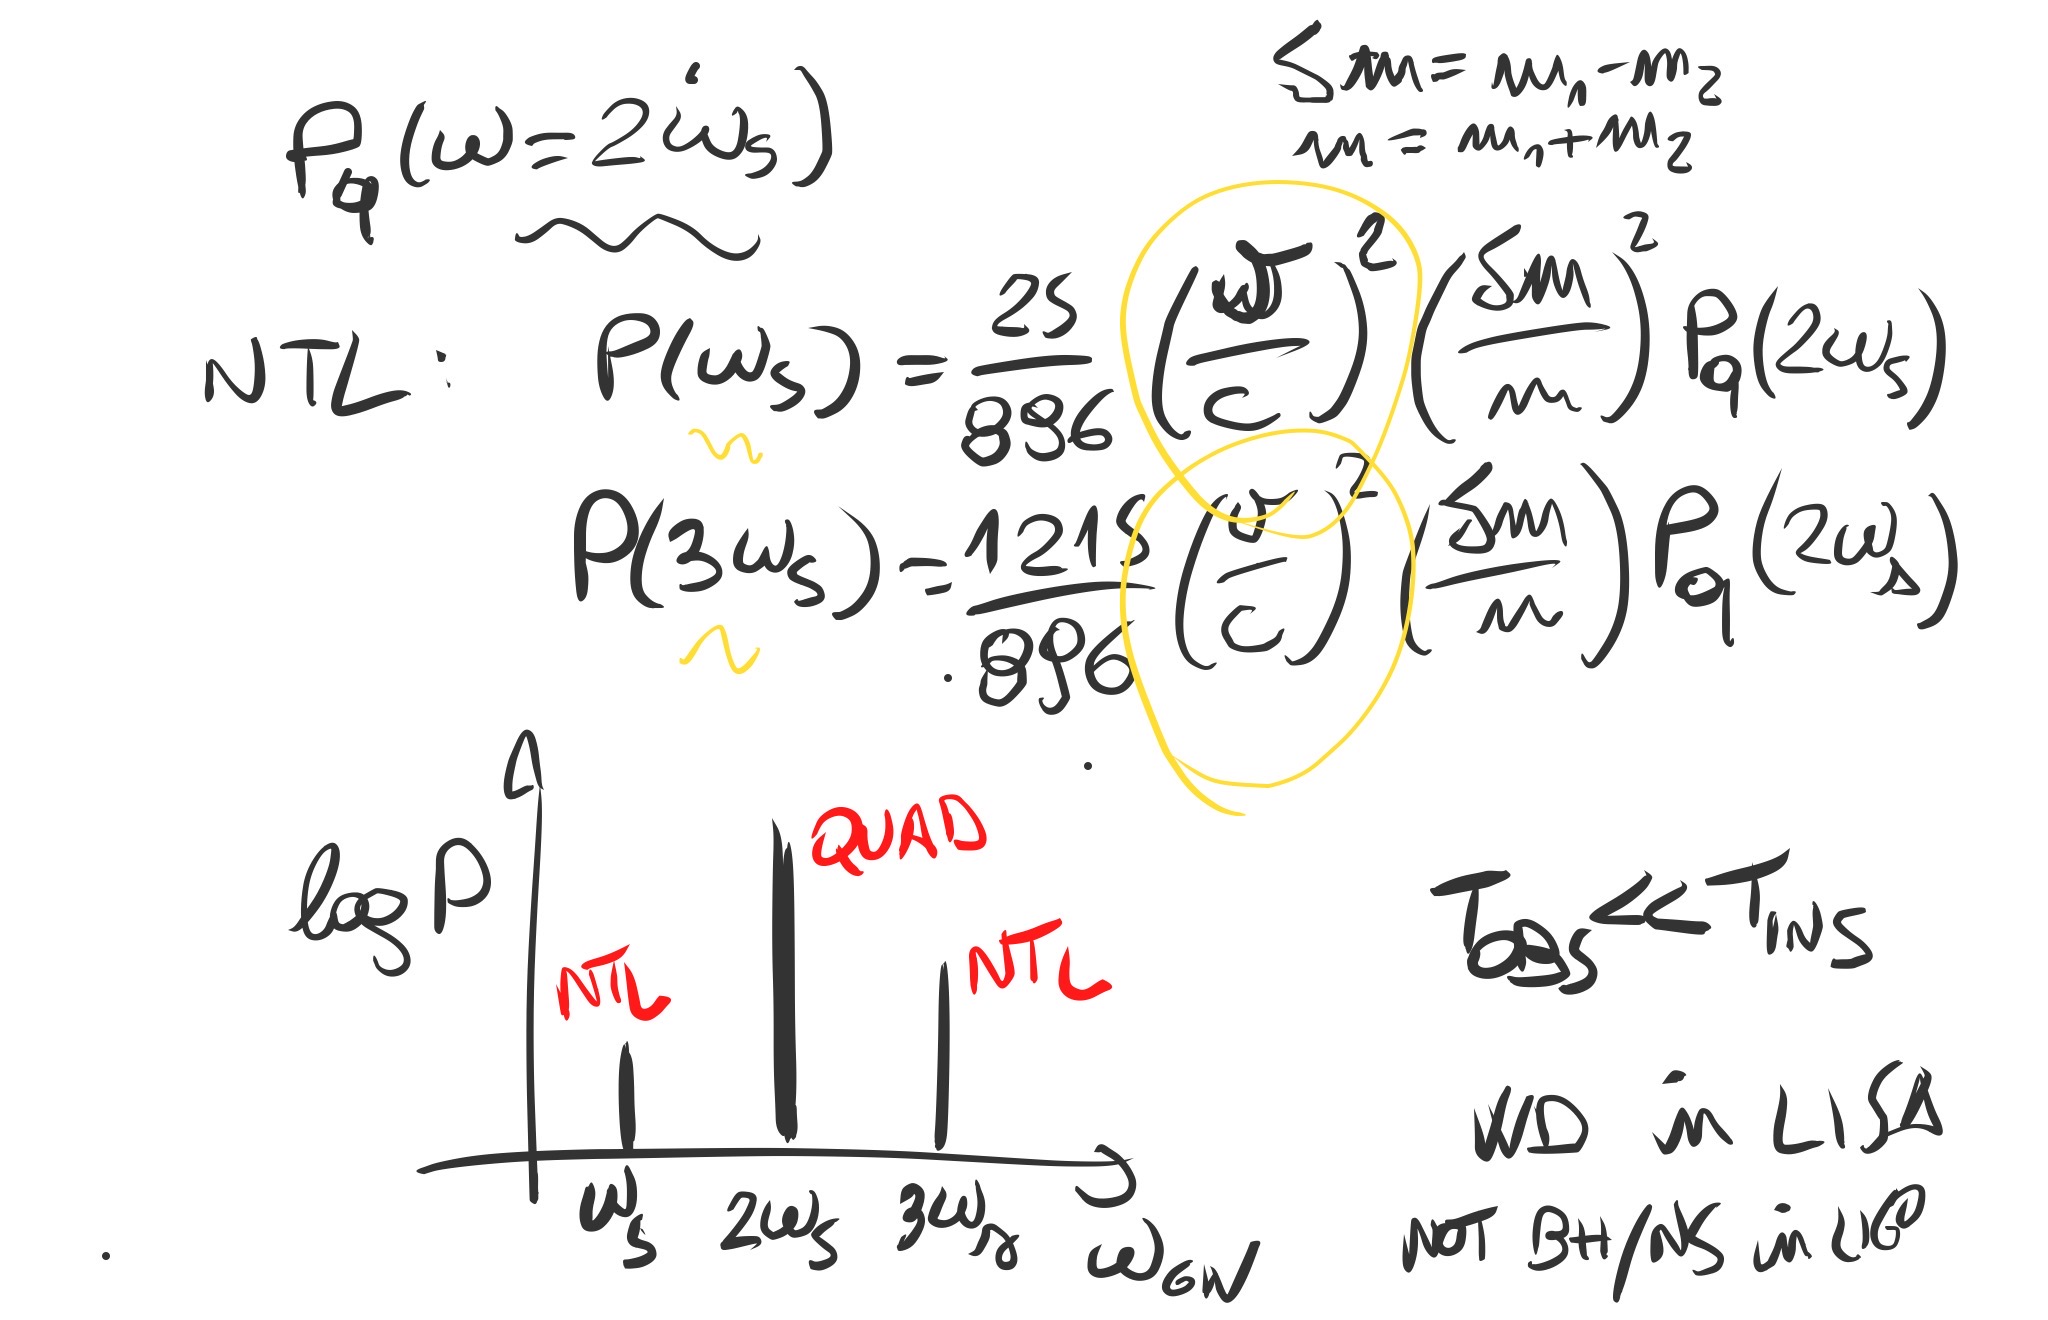 δm = m₁ - m₂
m = m₁ + m₂
P_q (ω = 2ω_s)
NTL : P(ω_s) = 25/896 (v/c)² (δm/m)² P_q (2ω_s)
P(3ω_s) = 1215/896 (v/c)² (δm/m) P_q (2ω_s)
log P
NTL
QUAD
NTL
ω_s 2ω_s 3ω_s ω_GW
T_OBS << T_INS
WD in LISA
NOT BH/NS in LIGO